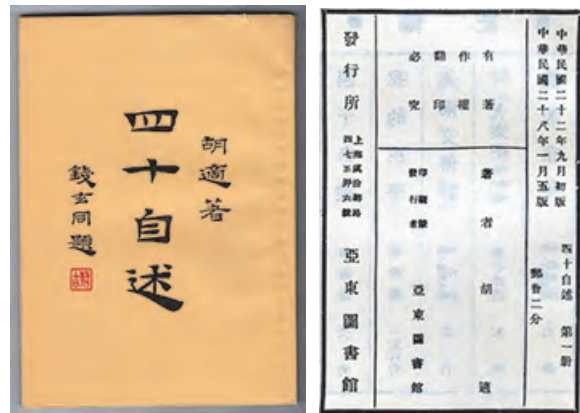 胡適著
四十自述
錢玄同題
中華民國二十二年九月初版
中華民國二十八年一月五版
四十自述 第一册
二分
有著
作權
翻印
必究
著者 胡適
發行者 亞東圖書館
發行所 上海 亞東圖書館